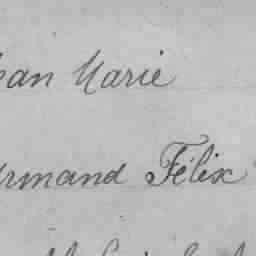 ean Marie
rmand Félix